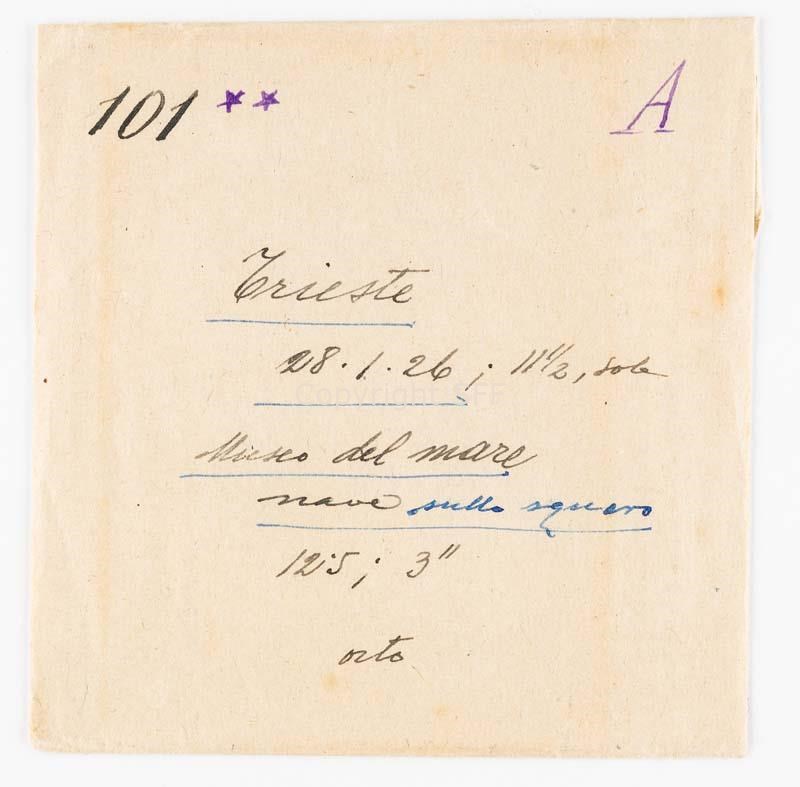 101 ** A
Trieste
28.1.26 ; 11 1/2, sole
Museo del mare
nave sullo squero
12.5 ; 3"
orto